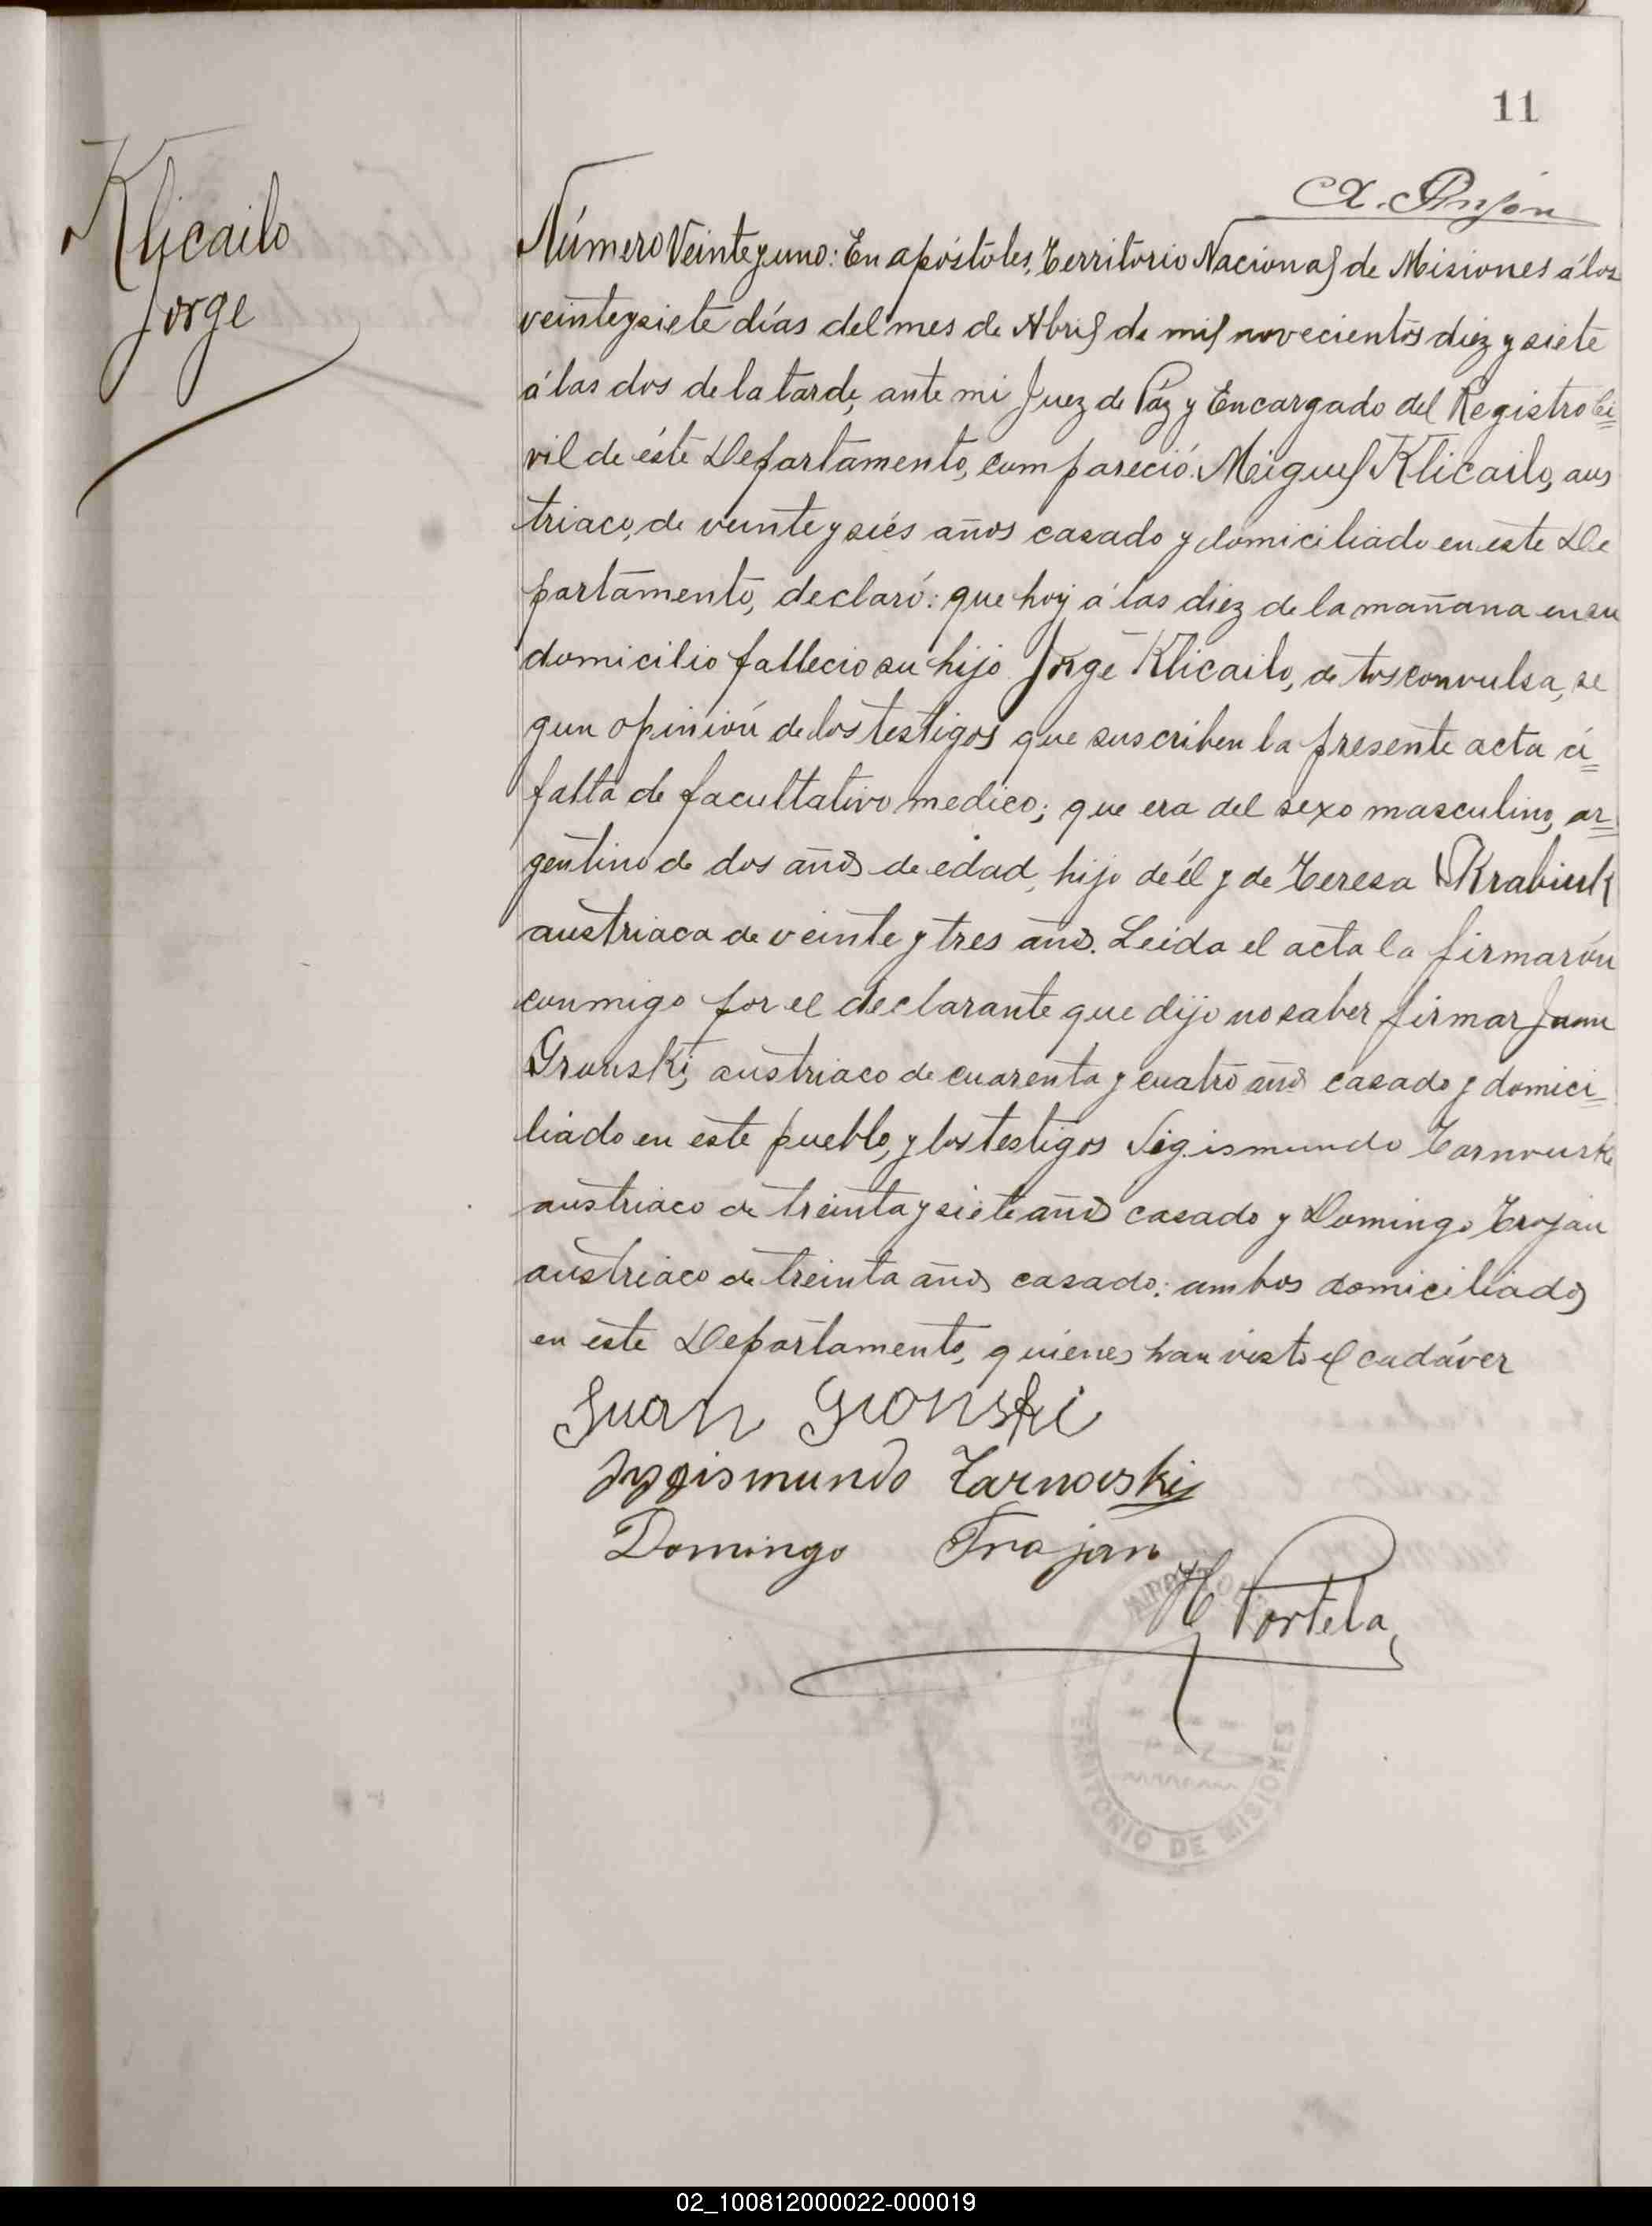 11
Klicailo
Jorge
Número Veinte y uno: En apóstoles, Territorio Nacional de Misiones á los
veinte y siete días del mes de Abril de mil novecientos diez y siete
á las dos de la tarde, ante mi Juez de Páz y Encargado del Registro Ci=
vil de éste Departamento, compareció: Miguel Klicailo, aus
triaco, de veinte y siés años casado y domiciliado en este De
partamento, declaró: que hoy á las diez de la mañana en su
domicilio fallecio su hijo Jorge Klicailo, de tos convulsa, se
gun opinión de los testigos que suscriben la presente acta á=
falta de facultativo medico; que era del sexo masculino, ar=
gentino de dos años de edad, hijo de él y de Teresa Krabiuk
austriaca de veinte y tres años. Leida el acta la firmarón
conmigo por el declarante que dijo no saber firmar Juan
Gronski, austriaco de cuarenta y cuatro años casado y domici=
liado en este pueblo, y los testigos Sigismundo Tarnouski
austriaco de treinta y siete años casado y Domingo Trojan
austriaco de treinta años casado; ambos domiciliados
en este Departamento, quienes han visto el cadáver
Juan Gronski
Sygismundo Tarnowski
Domingo Trajan
H Portela
TERRITORIO DE MISIONES
02_100812000022-000019